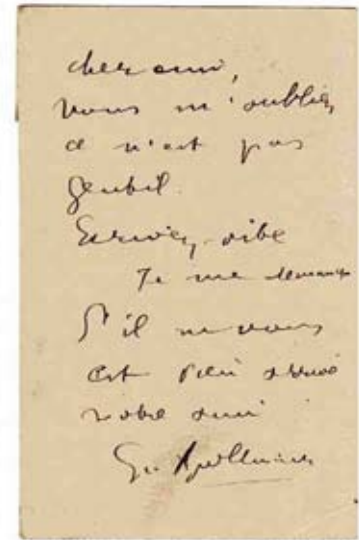 cher ami,
vous m'oubliez
ce n'est pas
gentil.
Ecrivez-vite
Je me demande
s'il ne vous
est rien arrivé
votre ami
Gui Apollinaire